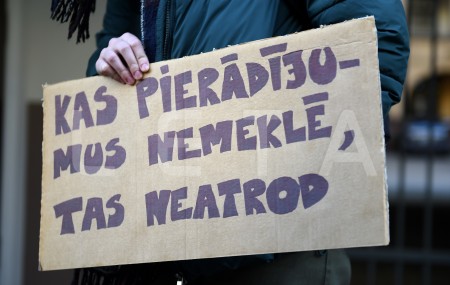 KAS PIERĀDĪJU-
MUS NEMEKLĒ,
TAS NEATROD
LETA